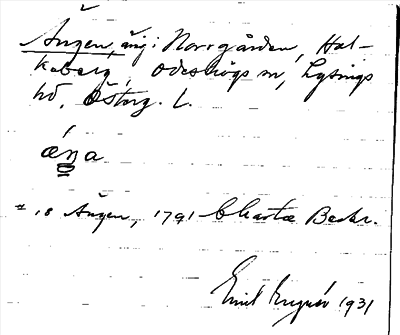 Ängen, äng i Norrgården, Hol-
kaberg, Ödeshögs sn, Lysings
hd, Österg. L.
ǽŋa
# 18 Ängen, 1791 Charta Beskr.
Emil 1931